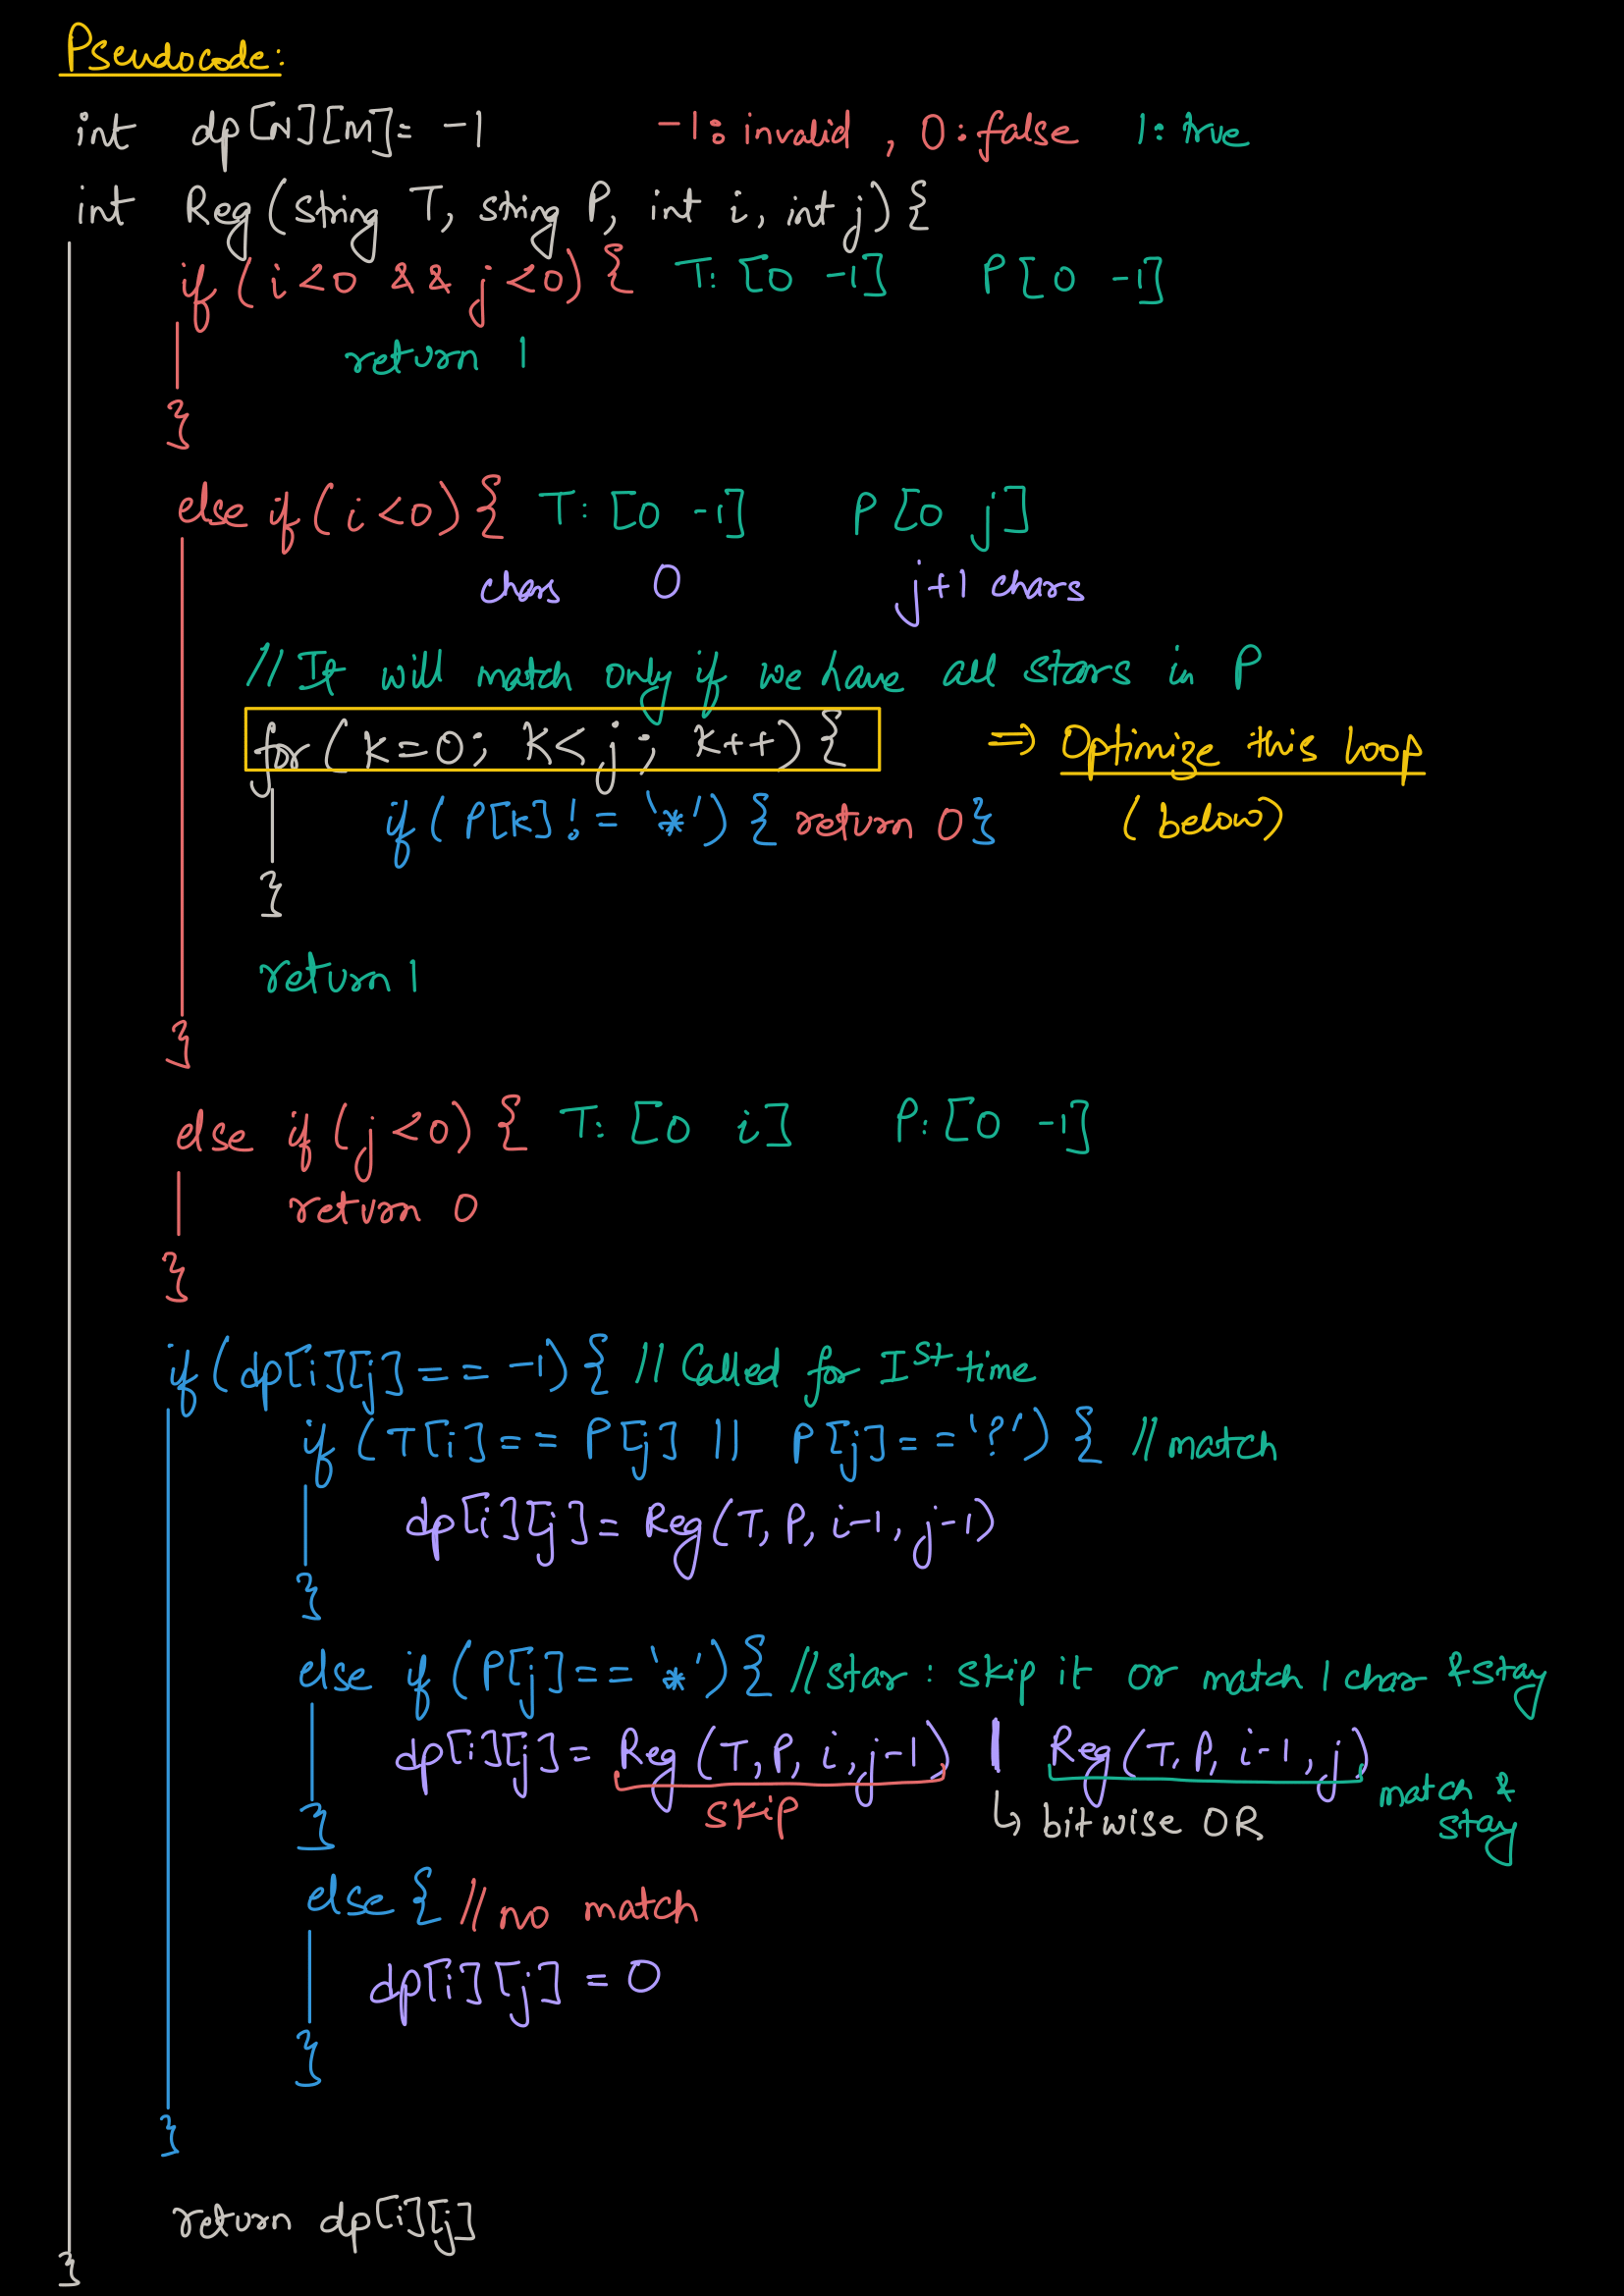 Pseudocode:
int dp[N][M]= -1 -1: invalid , 0: false 1: true
int Reg (string T, string P, int i, int j) {
if ( i<0 && j<0) { T: [0 -1] P [0 -1]
return 1
}
else if ( i<0) { T: [0 -1] P [0 j]
chars 0 j+1 chars
// It will match only if we have all stars in P
for ( k=0; k<j; k++) { => Optimize this loop
if ( P[k] != '*') { return 0} (below)
}
return 1
}
else if (j<0) { T: [0 i] P: [0 -1]
return 0
}
if (dp[i][j] == -1) { // Called for Ist time
if (T[i] == P[j] || P[j] == '?') { // match
dp[i][j] = Reg (T, P, i-1, j-1)
}
else if (P[j] == '*') { // star : skip it or match 1 char & stay
dp[i][j] = Reg (T, P, i, j-1) | Reg (T, P, i-1, j)
skip ↳ bitwise OR match & stay
}
else { // no match
dp[i][j] = 0
}
}
return dp[i][j]
}